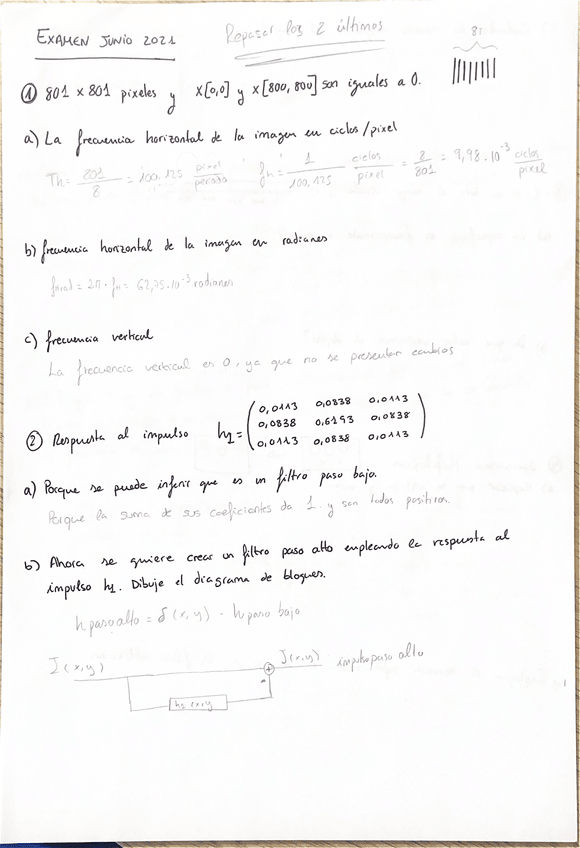 EXAMEN JUNIO 2021
Repasar los 2 últimos
8T
① 801 x 801 pixeles y x[0,0] y x[800,800] son iguales a 0.
a) La frecuencia horizontal de la imagen en ciclos/pixel
Th = 801/8 = 100,125 pixel/periodo fh = 1/100,125 ciclos/pixel = 8/801 = 9,98·10⁻³ ciclos/pixel
b) frecuencia horizontal de la imagen en radianes
fhrad = 2π · fh = 62,75·10⁻³ radianes
c) frecuencia vertical
La frecuencia vertical en 0, ya que no se presentan cambios
② Respuesta al impulso h1 = (0,0113 0,0838 0,0113
0,0838 0,6193 0,0838
0,0113 0,0838 0,0113)
a) Porque se puede inferir que es un filtro paso bajo.
Porque la suma de sus coeficientes da 1. y son todos positivos.
b) Ahora se quiere crear un filtro paso alto empleando la respuesta al
impulso h1. Dibuje el diagrama de bloques.
h paso alto = δ(x,y) - h paso bajo
I(x,y) + J(x,y) impulso paso alto
-
h1(x,y)